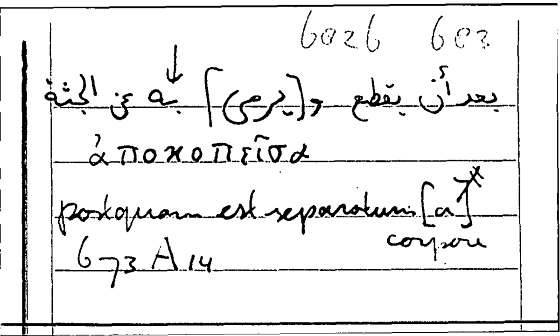 6026 603
بعد أن يقطع و[يرمى] به عن الجثة
ἀποκοπεῖσα
postquam est separatum [a]
corpore
673 A 14